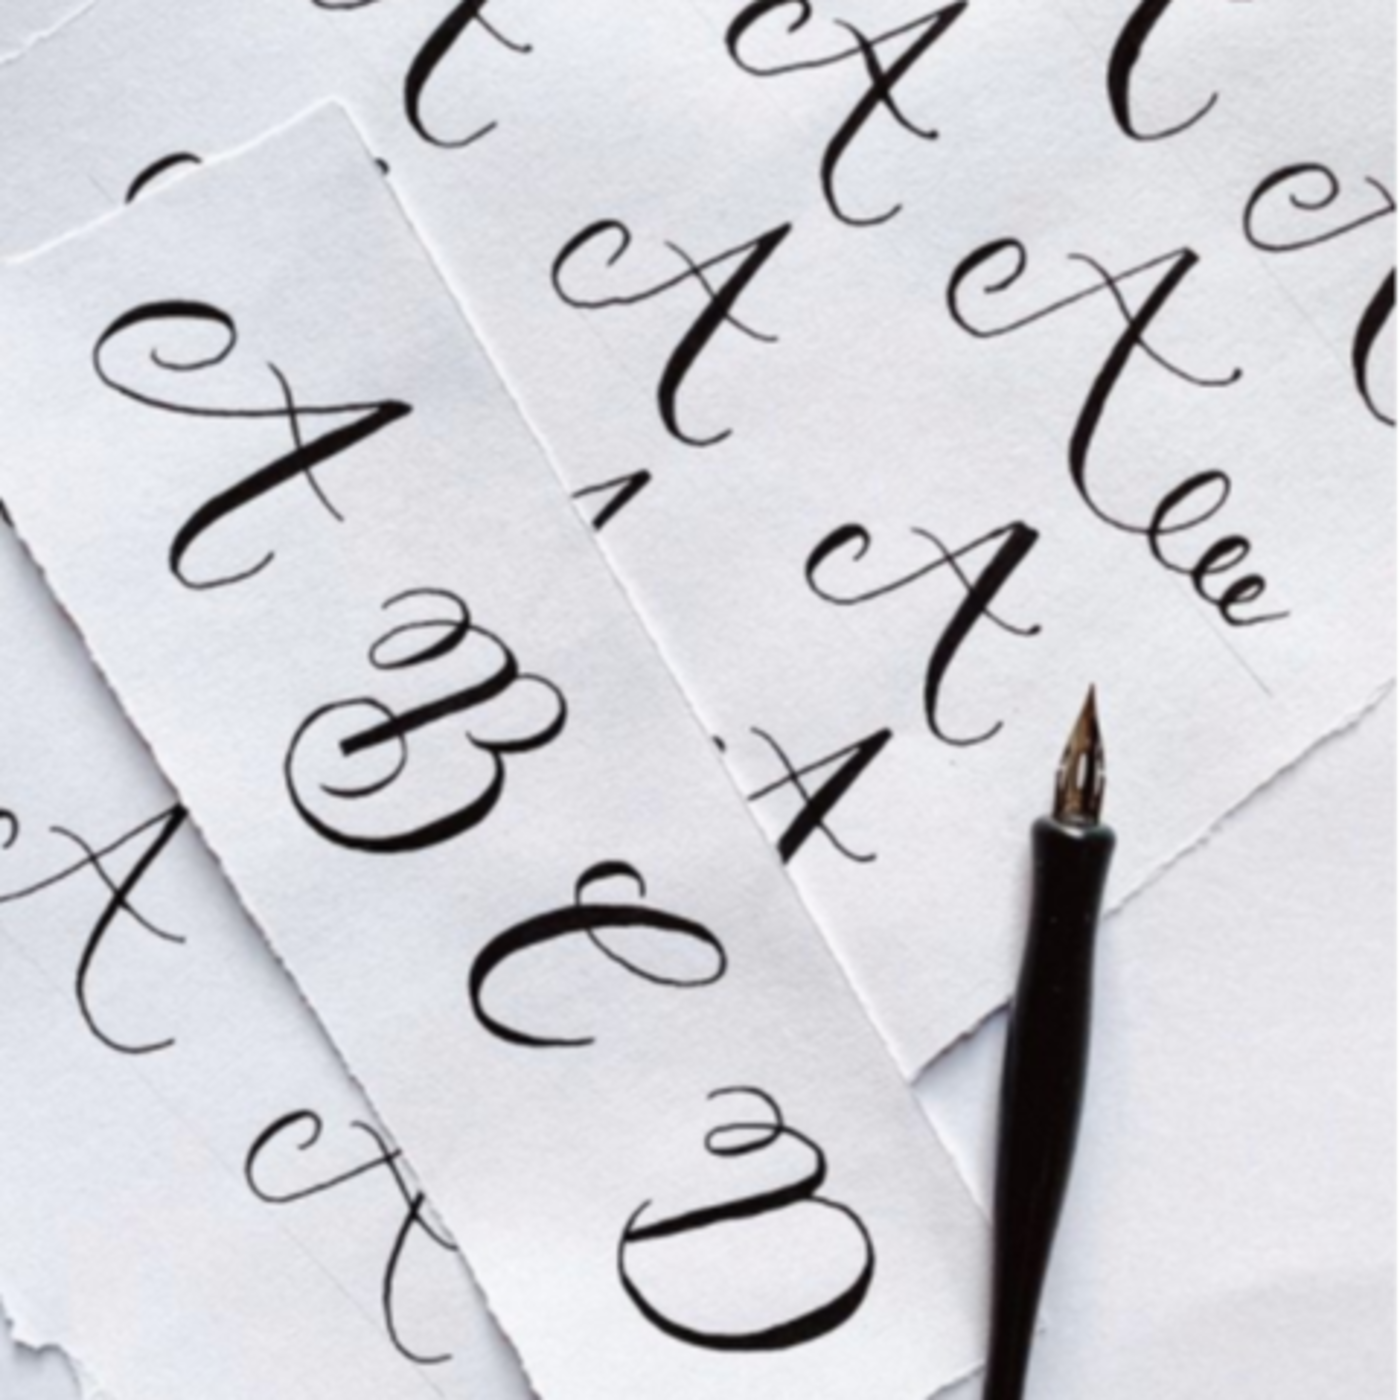 A
B
C
D
A
A
A
A
A
A
A
A
A
A